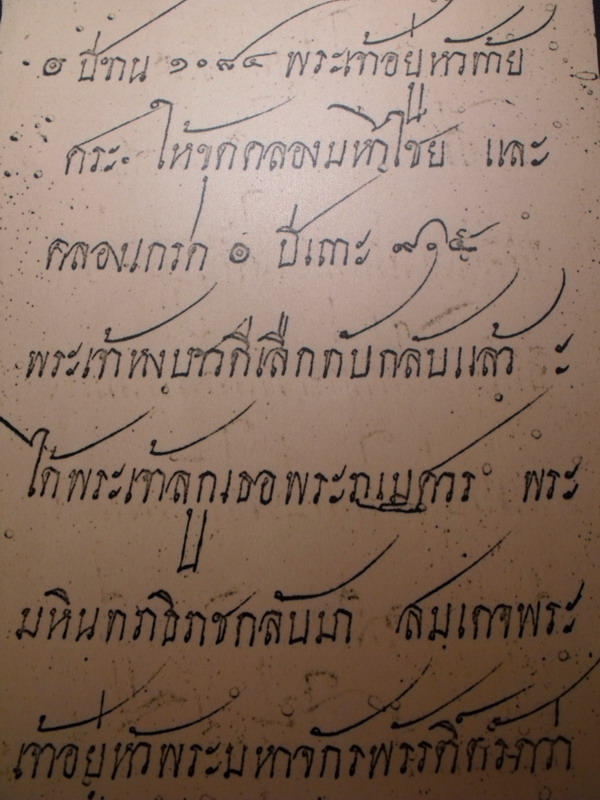 ๏ ปีขาน ๑๐๘๔ พระเจ้าอยู่หัวท้าย
สระ ให้ขุดคลองมหาไชย และ
คลองเกรด ๏ ปีเถาะ
พระเจ้าหงษาวดีเลิกทับกลับแล้ว ะ
ได้พระเจ้าลูกเธอพระราเมศวร พระ
มหินทราธิราชกลับมา สมเดจพระ
เจ้าอยู่หัวพระมหาจักรพรรดิ์ตรัสว่า